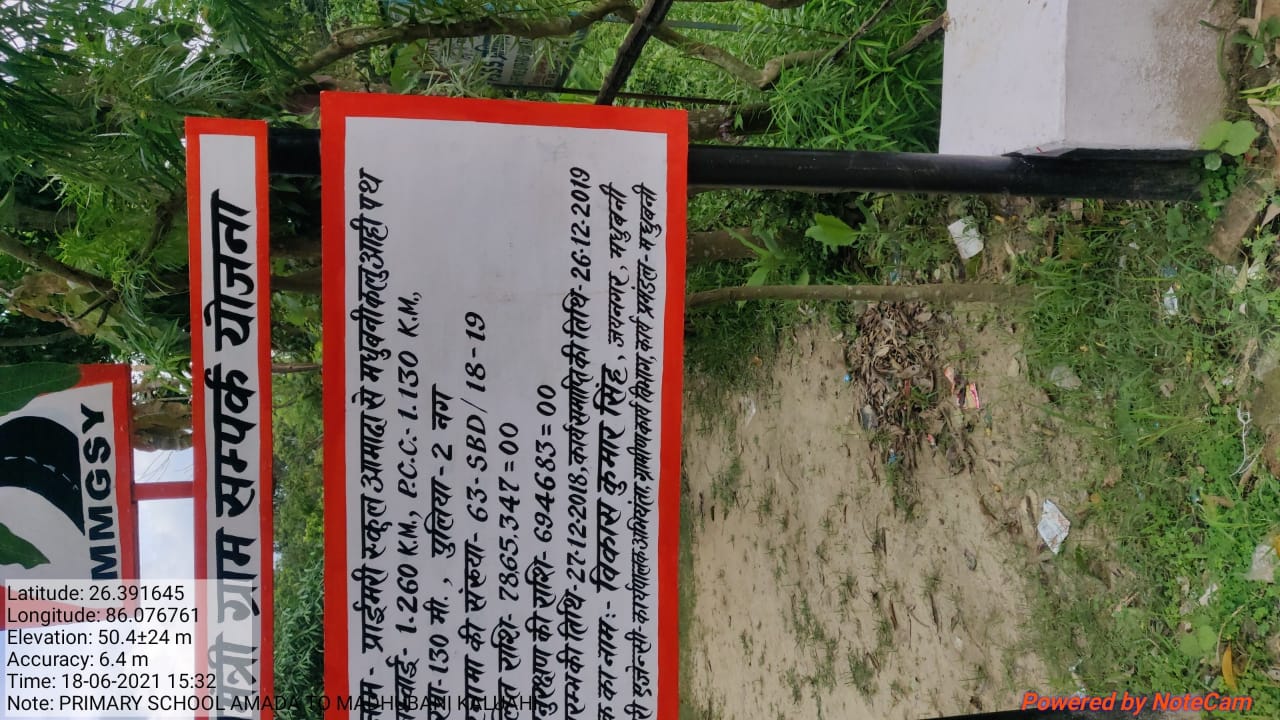 MMGSY
ग्राम सम्पर्क योजना
प्राईमरी स्कुल आमाटा से मधुबनी कलुआही पथ
1.260 K.M., P.C.C.- 1.130 K.M.,
130 मी., पुलिया- 2 नग
की संख्या- 63-SBD/18-19
राशि- 7865.347=00
अनुरक्षण की राशि- 694683=00
की तिथि- 27-12-2018, कार्य समाप्ति की तिथि- 26-12-2019
के का नाम:- विकास कुमार सिंह, जयनगर, मधुबनी
एजेन्सी- कार्यपालक अभियंता, ग्रामीण कार्य विभाग, कार्य प्रमंडल- मधुबनी
Latitude: 26.391645
Longitude: 86.076761
Elevation: 50.4±24 m
Accuracy: 6.4 m
Time: 18-06-2021 15:32
Note: PRIMARY SCHOOL AMADA TO MADHUBANI KALUAHI
Powered by NoteCam